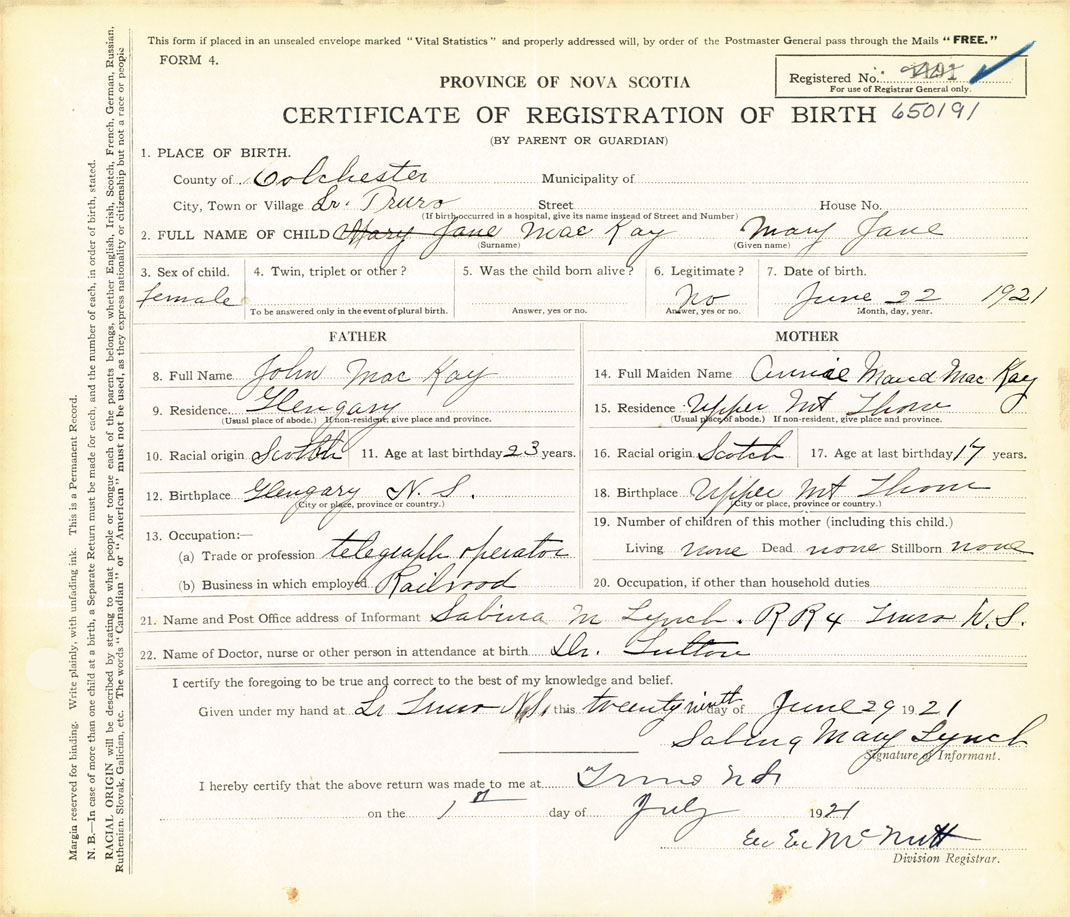 This form if placed in an unsealed envelope marked "Vital Statistics" and properly addressed will, by order of the Postmaster General pass through the Mails "FREE."
FORM 4.
Registered No.
For use of Registrar General only.
PROVINCE OF NOVA SCOTIA
CERTIFICATE OF REGISTRATION OF BIRTH 650191
(BY PARENT OR GUARDIAN)
1. PLACE OF BIRTH.
County of Colchester Municipality of
City, Town or Village Lr. Truro Street House No.
(If birth occurred in a hospital, give its name instead of Street and Number)
2. FULL NAME OF CHILD Mary Jane Mac Kay Mary Jane
(Surname) (Given name)
3. Sex of child. 4. Twin, triplet or other? 5. Was the child born alive? 6. Legitimate? 7. Date of birth.
female No June 22 1921
To be answered only in the event of plural birth. Answer, yes or no. Answer, yes or no. Month, day, year.
FATHER MOTHER
8. Full Name John Mac Kay 14. Full Maiden Name Annie Maud Mac Kay
9. Residence Glengary 15. Residence Upper Mt Thom
(Usual place of abode.) If non-resident, give place and province. (Usual place of abode.) If non-resident, give place and province.
10. Racial origin Scotch 11. Age at last birthday 23 years. 16. Racial origin Scotch 17. Age at last birthday 17 years.
12. Birthplace Glengary N. S. 18. Birthplace Upper Mt Thom
(City or place, province or country.) (City or place, province or country.)
13. Occupation:— 19. Number of children of this mother (including this child.)
(a) Trade or profession telegraph operator Living none Dead none Stillborn none
(b) Business in which employed Railroad 20. Occupation, if other than household duties
21. Name and Post Office address of Informant Sabina M Lynch. R R 4 Truro N.S.
22. Name of Doctor, nurse or other person in attendance at birth Dr.
I certify the foregoing to be true and correct to the best of my knowledge and belief.
Given under my hand at Lr Truro N.S. this twenty ninth day of June 29 1921
Sabina Mary Lynch
Signature of Informant.
I hereby certify that the above return was made to me at Truro N S
on the 1st day of July 1921
McNutt
Division Registrar.
Margin reserved for binding. Write plainly, with unfading ink. This is a Permanent Record.
N. B.—In case of more than one child at a birth, a Separate Return must be made for each, and the number of each, in order of birth, stated.
RACIAL ORIGIN will be described by stating to what people or tongue each of the parents belongs, whether English, Irish, Scotch, French, German, Russian,
Ruthenian, Slovak, Galician, etc. The words "Canadian" or "American" must not be used, as they express nationality or citizenship but not a race or people